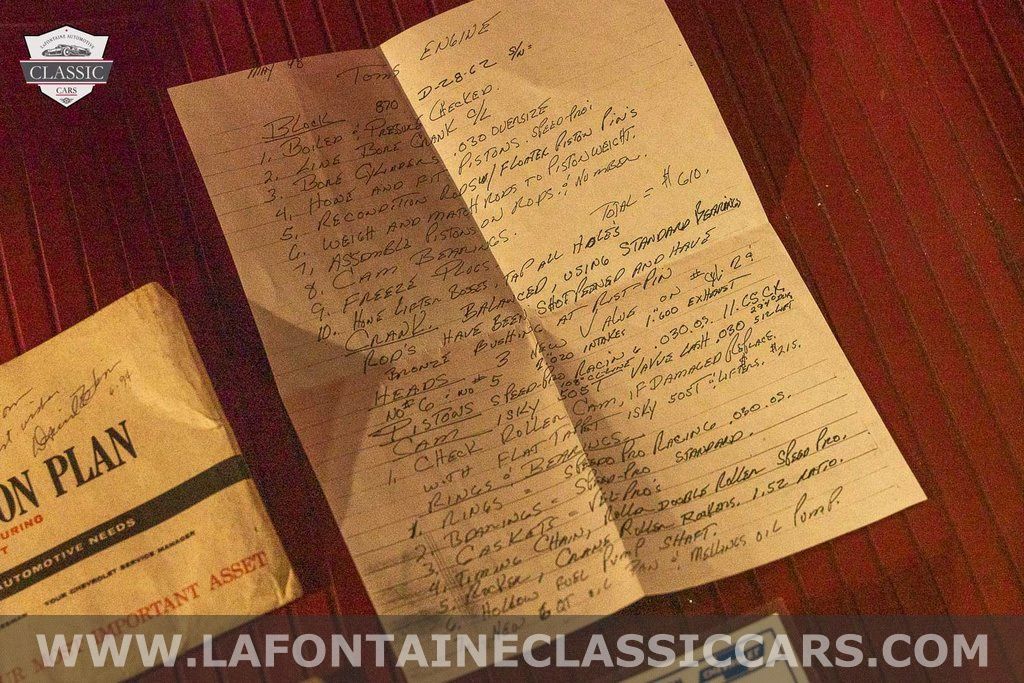 LAFONTAINE AUTOMOTIVE
CLASSIC
CARS
MAY 98 TOMS ENGINE
BLOCK 870 D-28-62 S/N=
1. BOILED & PRESURE CHECKED.
2. LINE BORE CRANK C/L
3. BORE CYLINDERS .030 OVERSIZE
4. HONE AND FIT PISTONS. SPEED-PRO.
5. RECONDITION RODS W/ FLOATER PISTON PINS
6. WEIGH AND MATCH RODS TO PISTON WEIGHT.
7. ASSEMBLE PISTONS ON RODS. & NUMBER.
8. CAM BEARINGS.
9. FREEZE PLUGS. TOTAL = $610.
10. HONE LIFTER BOSES, TAP ALL HOLES
CRANK. BALANCED, USING STANDARD BEARINGS
ROD'S HAVE BEEN SHOTPEENED AND HAVE
BRONZE BUSHING AT RIST PIN
HEADS. 3 NEW VALVE ON # CYL.
NO# 6 & NO# 5 2.020 INTAKES 1.600 EXHAUST
PISTONS SPEED-PRO RACING .030.OS. 11.65 CX.
CAM ISKY 505T VAVUE LASH .030 512 LIFT
1. CHECK ROLLER CAM, IF DAMAGED REPLACE.
WITH FLAT TAPET ISKY 505T & LIFTERS. $215.
RINGS & BEARINGS
1. RINGS = SPEED PRO RACING .030.OS.
2. BEARINGS = SPEED-PRO STANDARD.
GASKETS = FEL-PRO'S
4. TIMING CHAIN, ROLLO DOUBLE ROLLER SPEED PRO.
5. ROCKER, CRANE ROLLER ROCKERS. 1.52 RATIO.
6. HOLLOW FUEL PUMP SHAFT.
NEW 6 QT OIL PAN & MELLINGS OIL PUMP.
6-94
ON PLAN
URING
AUTOMOTIVE NEEDS
YOUR CHEVROLET SERVICE MANAGER
IMPORTANT ASSET
WWW.LAFONTAINECLASSICCARS.COM